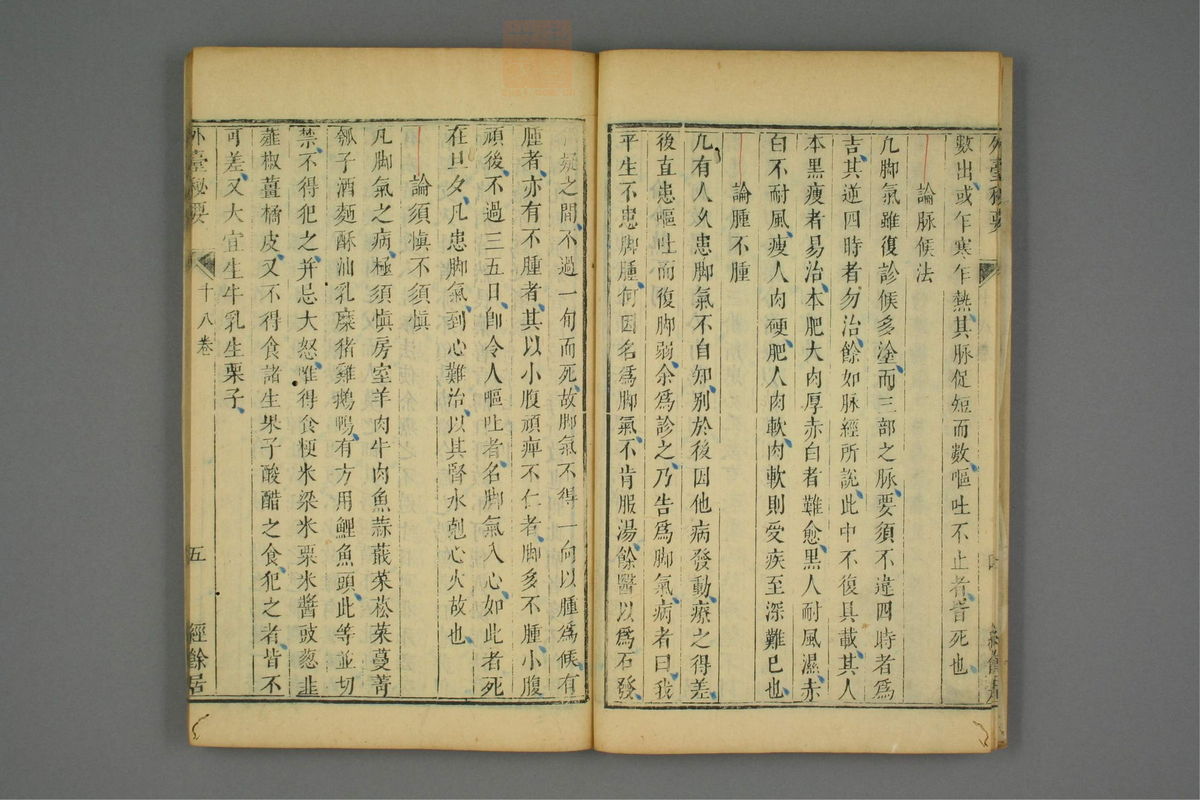 外臺秘要
數出或乍寒乍熱其脉促短而數嘔吐不止者皆死也
論脉候法
凡脚氣雖復診候多塗而三部之脉要須不違四時者爲
吉其逆四時者勿治餘如脉經所說此中不復具載其人
本黑瘦者易治本肥大肉厚赤白者難愈黑人耐風濕赤
白不耐風瘦人肉硬肥人肉軟肉軟則受疾至深難已也
論腫不腫
凡有人久患脚氣不自知别於後因他病發動療之得差
後直患嘔吐而復脚弱余爲診之乃告爲脚氣病者曰我
平生不患脚腫何因名爲脚氣不肯服湯餘醫以爲石發
疑之間不過一旬而死故脚氣不得一向以腫爲候有
腫者亦有不腫者其以小腹頑痺不仁者脚多不腫小腹
頑後不過三五日卽令人嘔吐者名脚氣入心如此者死
在旦夕凡患脚氣到心難治以其腎水剋心火故也
論須愼不須愼
凡脚氣之病極須愼房室羊肉牛肉魚蒜蕺菜菘菜蔓菁
瓠子酒麵酥油乳糜猪雞鵝鴨有方用鯉魚頭此等並切
禁不得犯之并忌大怒惟得食粳米粱米粟米醬豉葱韭
薤椒薑橘皮又不得食諸生果子酸醋之食犯之者皆不
可差又大宜生牛乳生栗子
外臺秘要 十八卷 五 經餘居